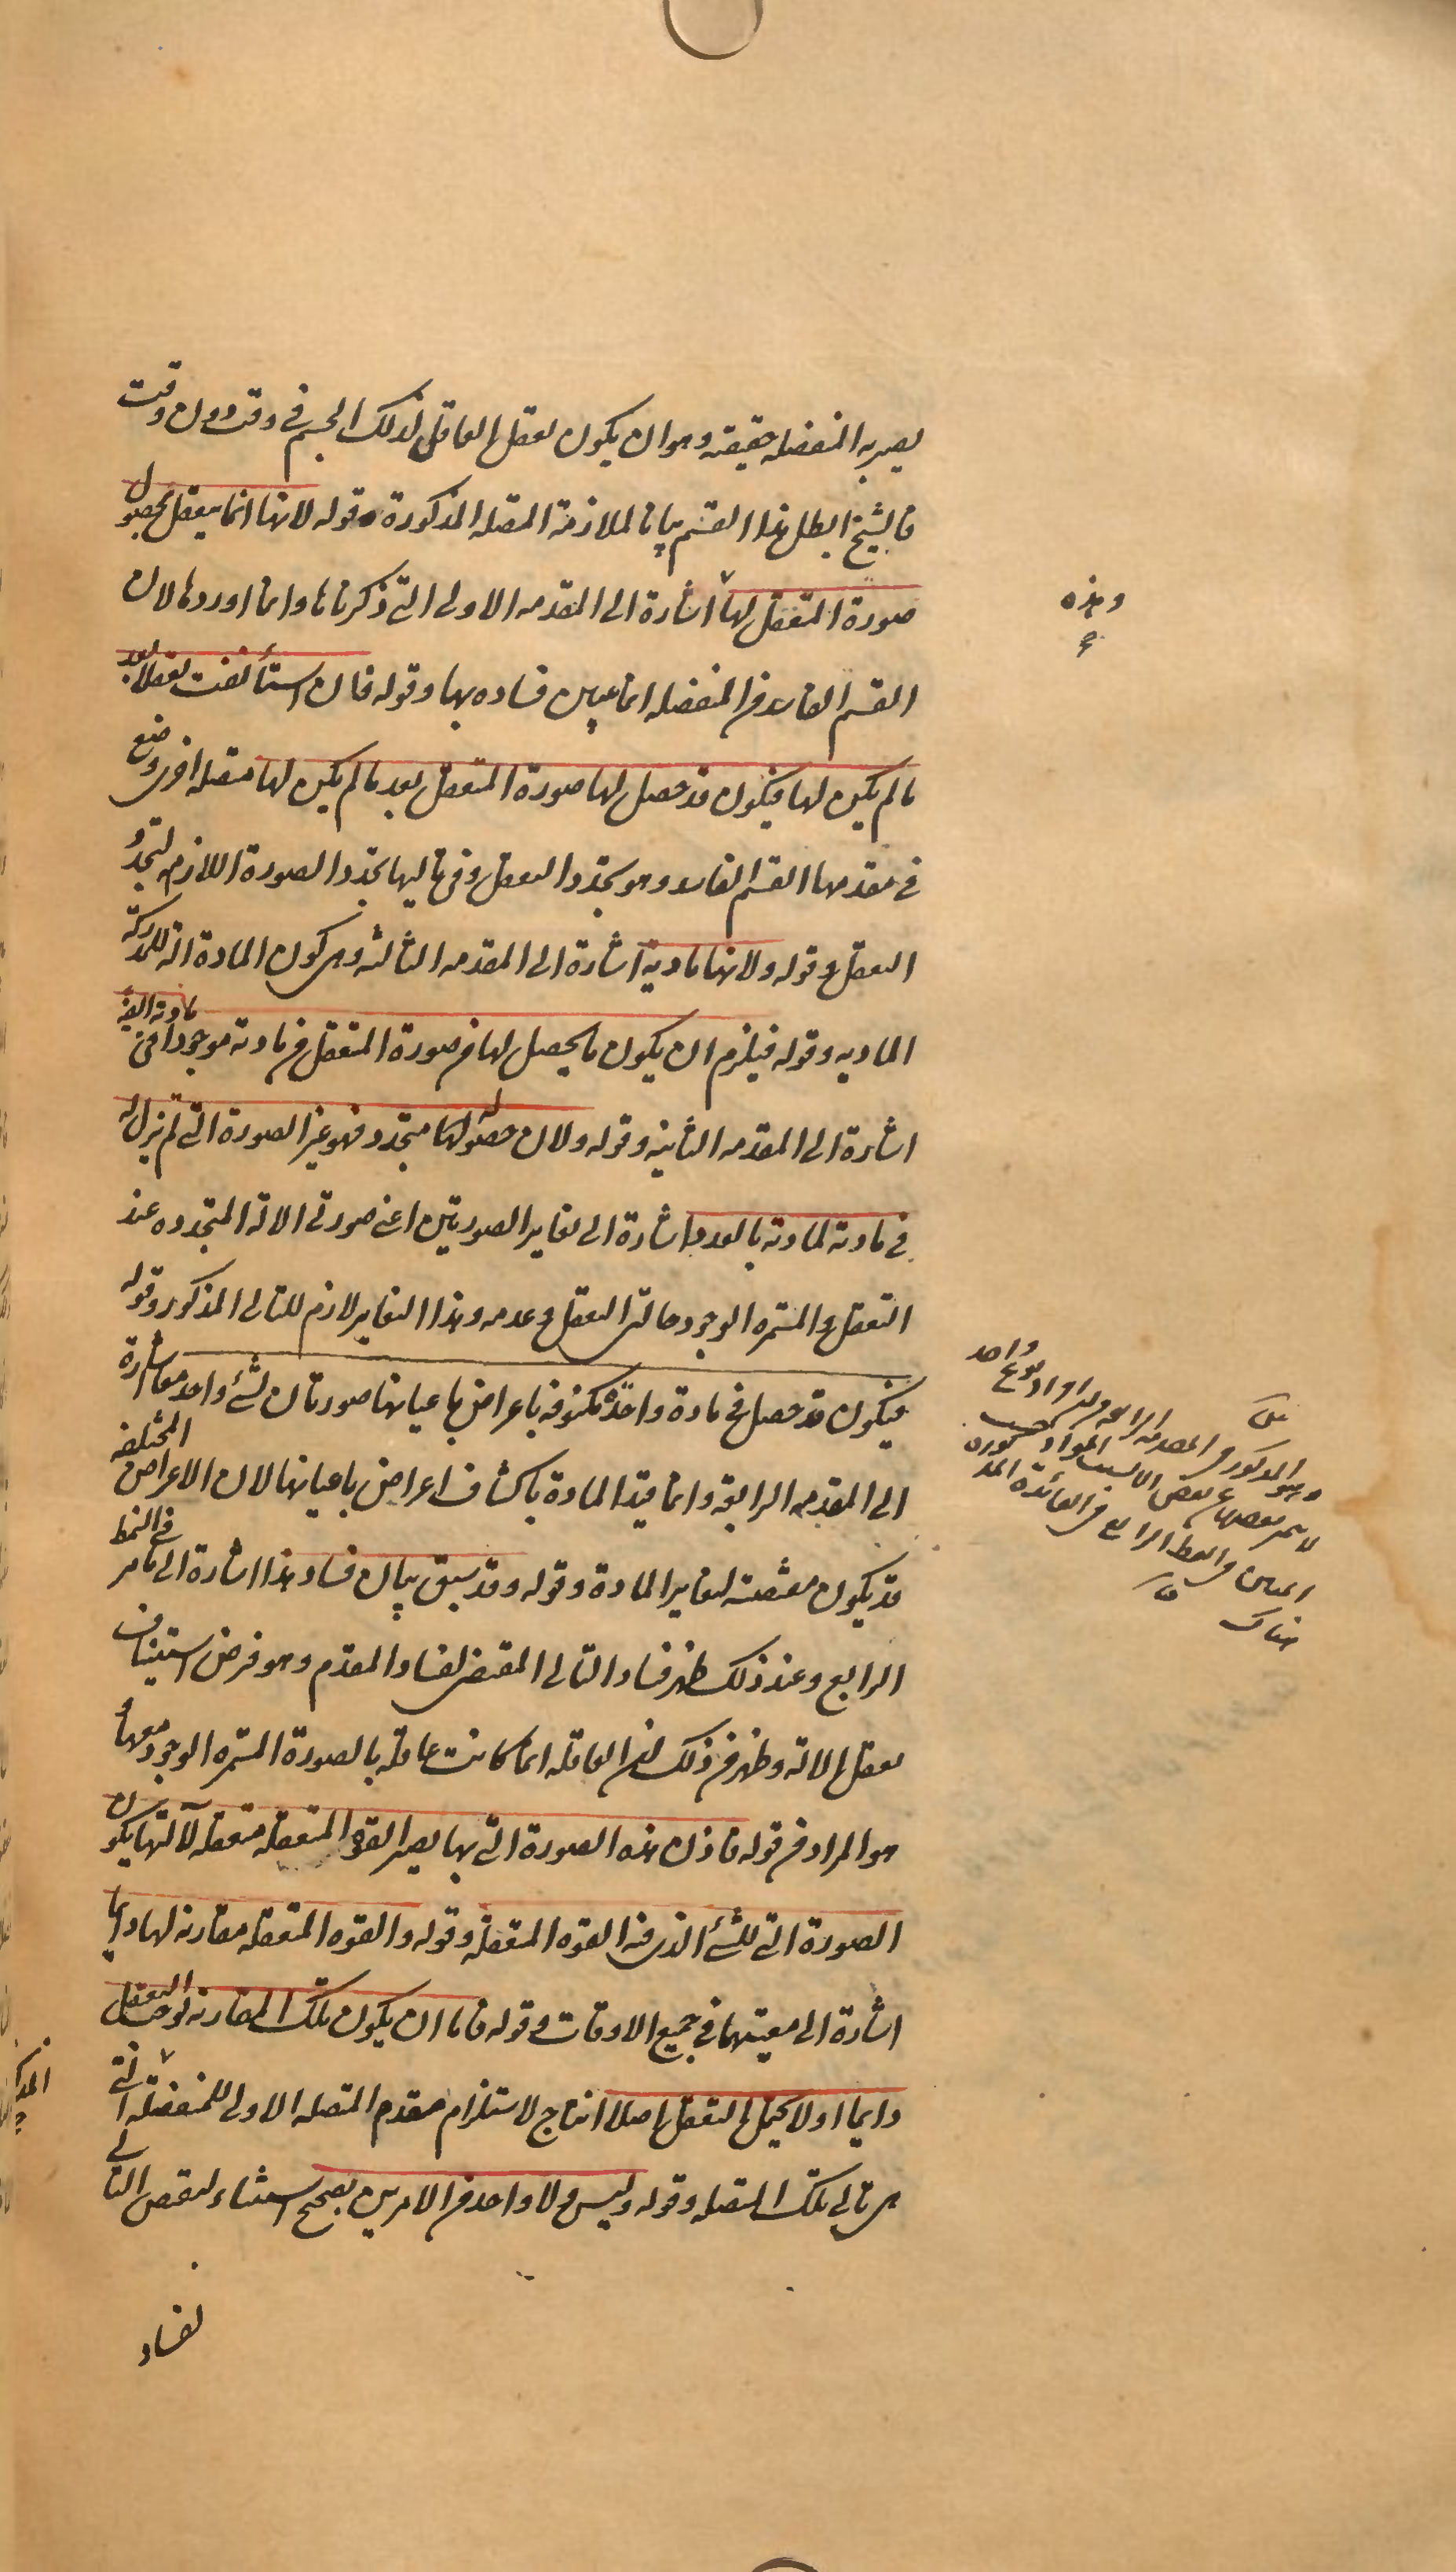 يصير به المنفصله حقيقيه وهو ان يكون تعقل العاقل لذلك الجسم في وقت دون وقت
فالشيخ ابطل هذا القسم بيانا لملازمة المتصله المذكورة وقوله لانها انما يتعقل بحصول
صورة المتعقل لها اشارة الى المقدمه الاولى التي ذكرناها وانما اوردها لان
القسم الفاسد من المنفصله انما يتبين فساده بها وقوله فان استأنفت تعقلا بعد
ما لم يكن لها فيكون قد حصل لها صورة المتعقل بعد ما لم يكن لها متصله اخرى وضع
في مقدمها القسم الفاسد وهو تجدد التعقل وفي تاليها تجدد الصورة اللازم لتجدد
التعقل وقوله ولانها مادية اشارة الى المقدمه الثالثه وهي كون المادة آلة للمدركة
الماديه وقوله فيلزم ان يكون ما يحصل لها من صورة المتعقل من مادته موجودا في مادته ايضا
اشارة الى المقدمه الثانيه وقوله ولان حصوله لها متجدد فهو غير الصورة التي لم يزل له
في مادته لمادته بالعدد اشارة الى تغاير الصورتين اعني صورتي الالة المتجدده عند
التعقل والمستمره الوجود حالتي التعقل وعدمه وهذا التغاير لازم للتالي المذكور وقوله
فيكون قد حصل في مادة واحدة مكنوفه باعراض باعيانها صورتان لشئ واحد معا اشارة
الى المقدمه الرابعة وانما قيد المادة باكتناف اعراض باعيانها لان الاعراض المختلفه
قد يكون مقتضيه لتغاير المادة وقوله وقد سبق بيان فساد هذا اشارة الى ما مر في النمط
الرابع وعند ذلك ظهر فساد التالي المقتضي لفساد المقدم وهو فرض استيناف
تعقل الالة وظهر من ذلك ان العاقله انما كانت عاقلة بالصورة المستمره الوجود معها
هو المراد من قوله فاذن هذه الصورة التي بها يصير القوة المتعقله متعقله لآلتها يكون
الصورة التي للشئ الذي فيه القوه المتعقله وقوله والقوه المتعقله مقارنه لها دايما
اشارة الى معيتهما في جميع الاوقات وقوله فاما ان يكون تلك المقارنه توجب التعقل
دايما اولا يحتمل التعقل اصلا انتاج لاستلزام مقدم المتصله الاولى للمنفصله التي
هي تالي تلك المتصله وقوله وليس ولا واحد من الامرين بصحيح استثناء لنقيض التالي
لفساد
وهذه
واحد
المذكورة
هناك